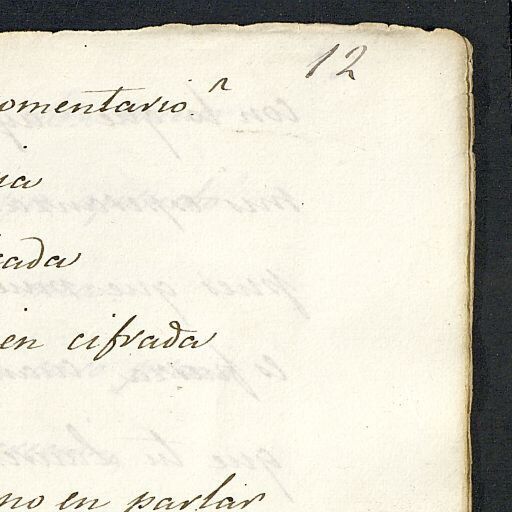 12
omentario.n
ia
ada
en cifrada
no en parlar